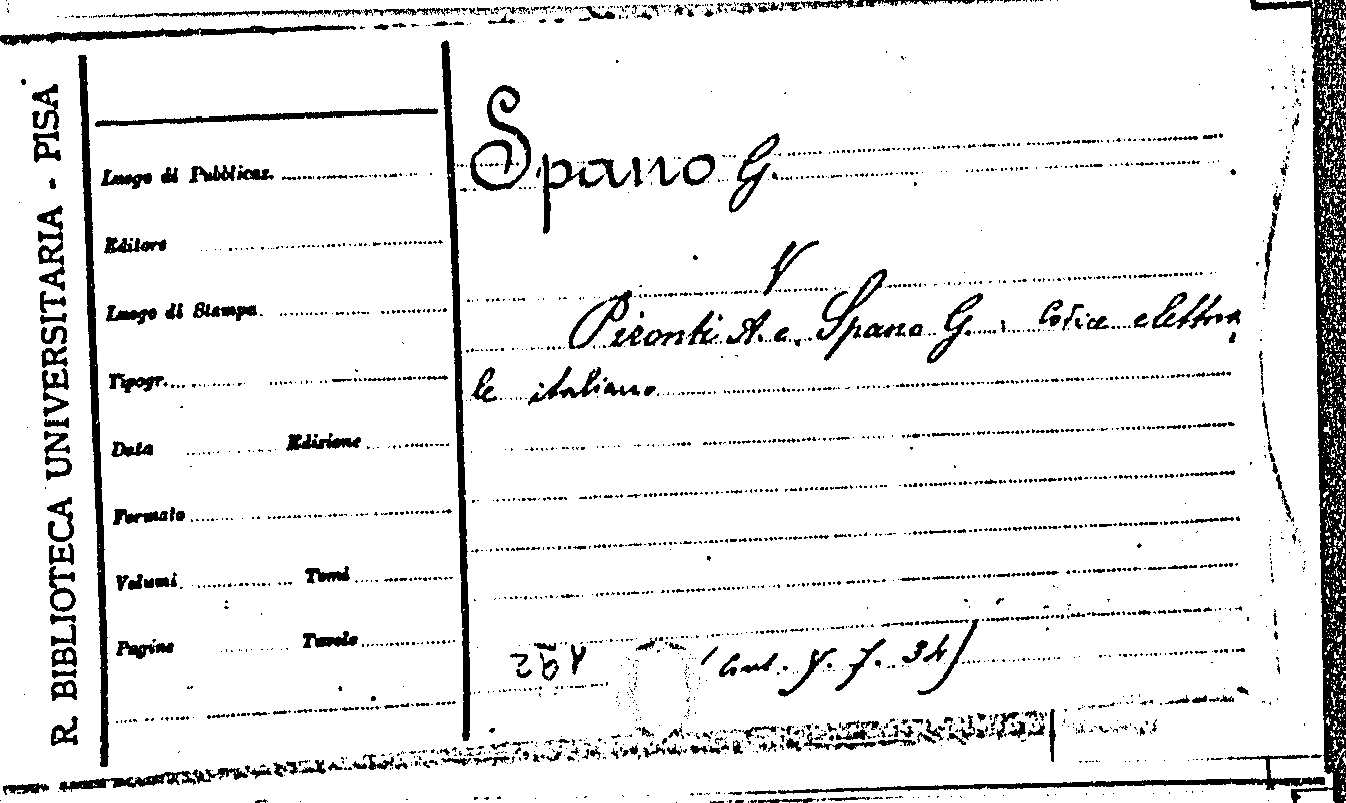 R. BIBLIOTECA UNIVERSITARIA - PISA
Luogo di Pubblicaz.
Editore
Luogo di Stampa
Tipogr.
Data Edizione
Formato
Volumi Tomi
Pagine Tavole
Spano G.
V
Pironti A. e Spano G. : Codice elettora
le italiano
V. 7. 34)